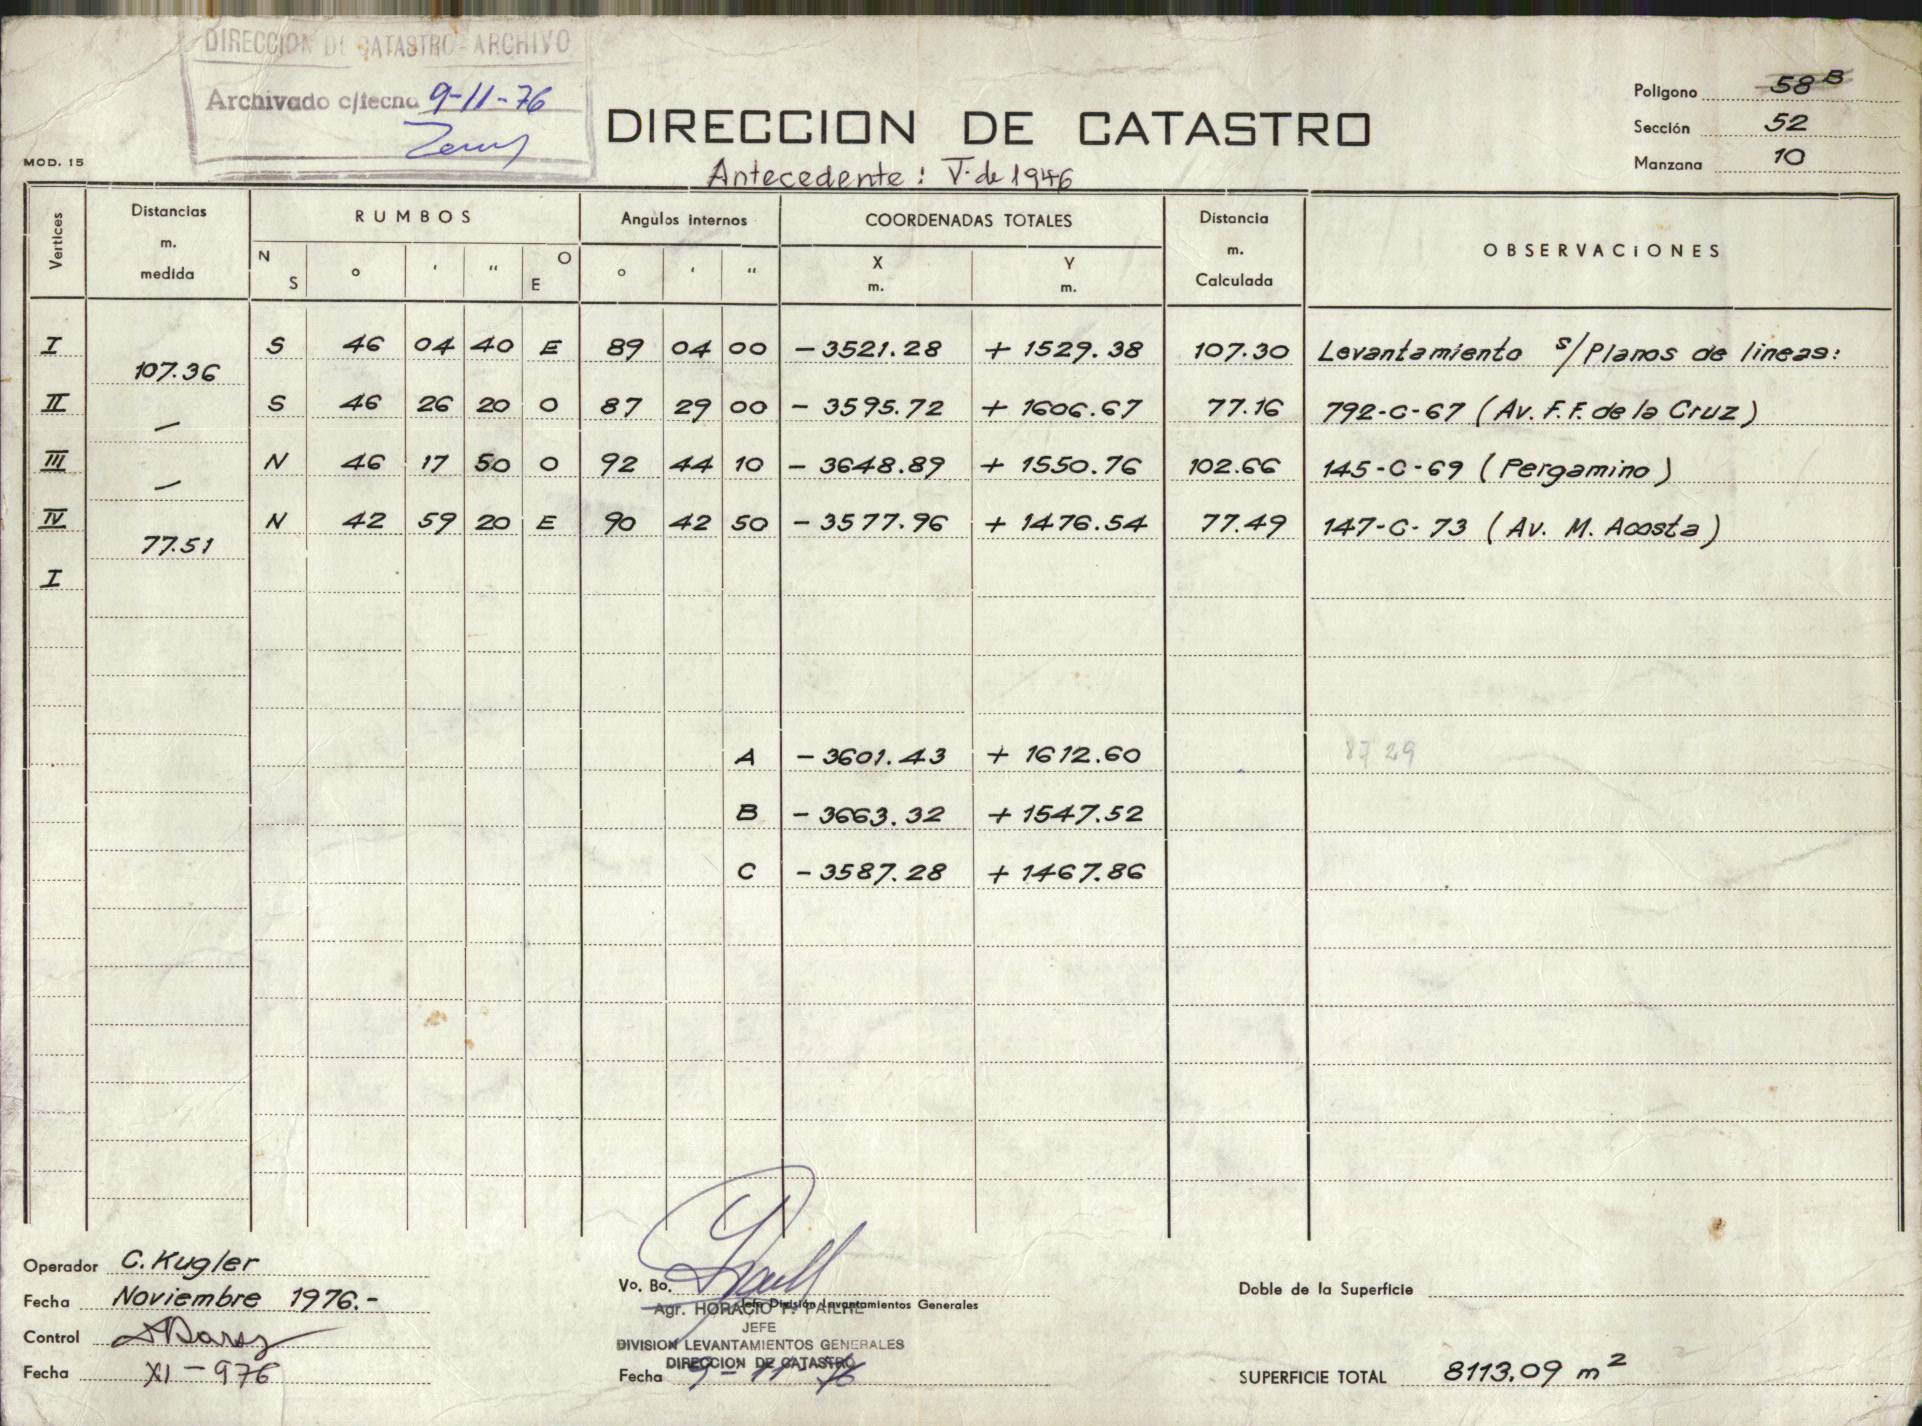 DIRECCION DE CATASTRO-ARCHIVO
Archivado c/fecha 9-11-76
MOD. 15
DIRECCION DE CATASTRO
Antecedente: V. de 1946
Poligono 58 B
Sección 52
Manzana 10
Vertices Distancias m. medida RUMBOS Angulos internos COORDENADAS TOTALES Distancia m. Calculada OBSERVACIONES
N S ° ' " O E ° ' " X m. Y m.
I S 46 04 40 E 89 04 00 - 3521.28 + 1529.38 107.30 Levantamiento s/Planos de lineas:
107.36
II S 46 26 20 O 87 29 00 - 3595.72 + 1606.67 77.16 792-C-67 (Av. F.F. de la Cruz)
—
III N 46 17 50 O 92 44 10 - 3648.89 + 1550.76 102.66 145-C-69 (Pergamino)
—
IV N 42 59 20 E 90 42 50 - 3577.96 + 1476.54 77.49 147-C-73 (Av. M. Acosta)
77.51
I
A - 3601.43 + 1612.60 87 29
B - 3663.32 + 1547.52
C - 3587.28 + 1467.86
Operador C. Kugler
Fecha Noviembre 1976.-
Control
Fecha XI-976
Vo. Bo.
Jefe División Levantamientos Generales
Agr. HORACIO
JEFE
DIVISION LEVANTAMIENTOS GENERALES
DIRECCION DE CATASTRO
Fecha 9-11-76
Doble de la Superficie
SUPERFICIE TOTAL 8113.09 m²